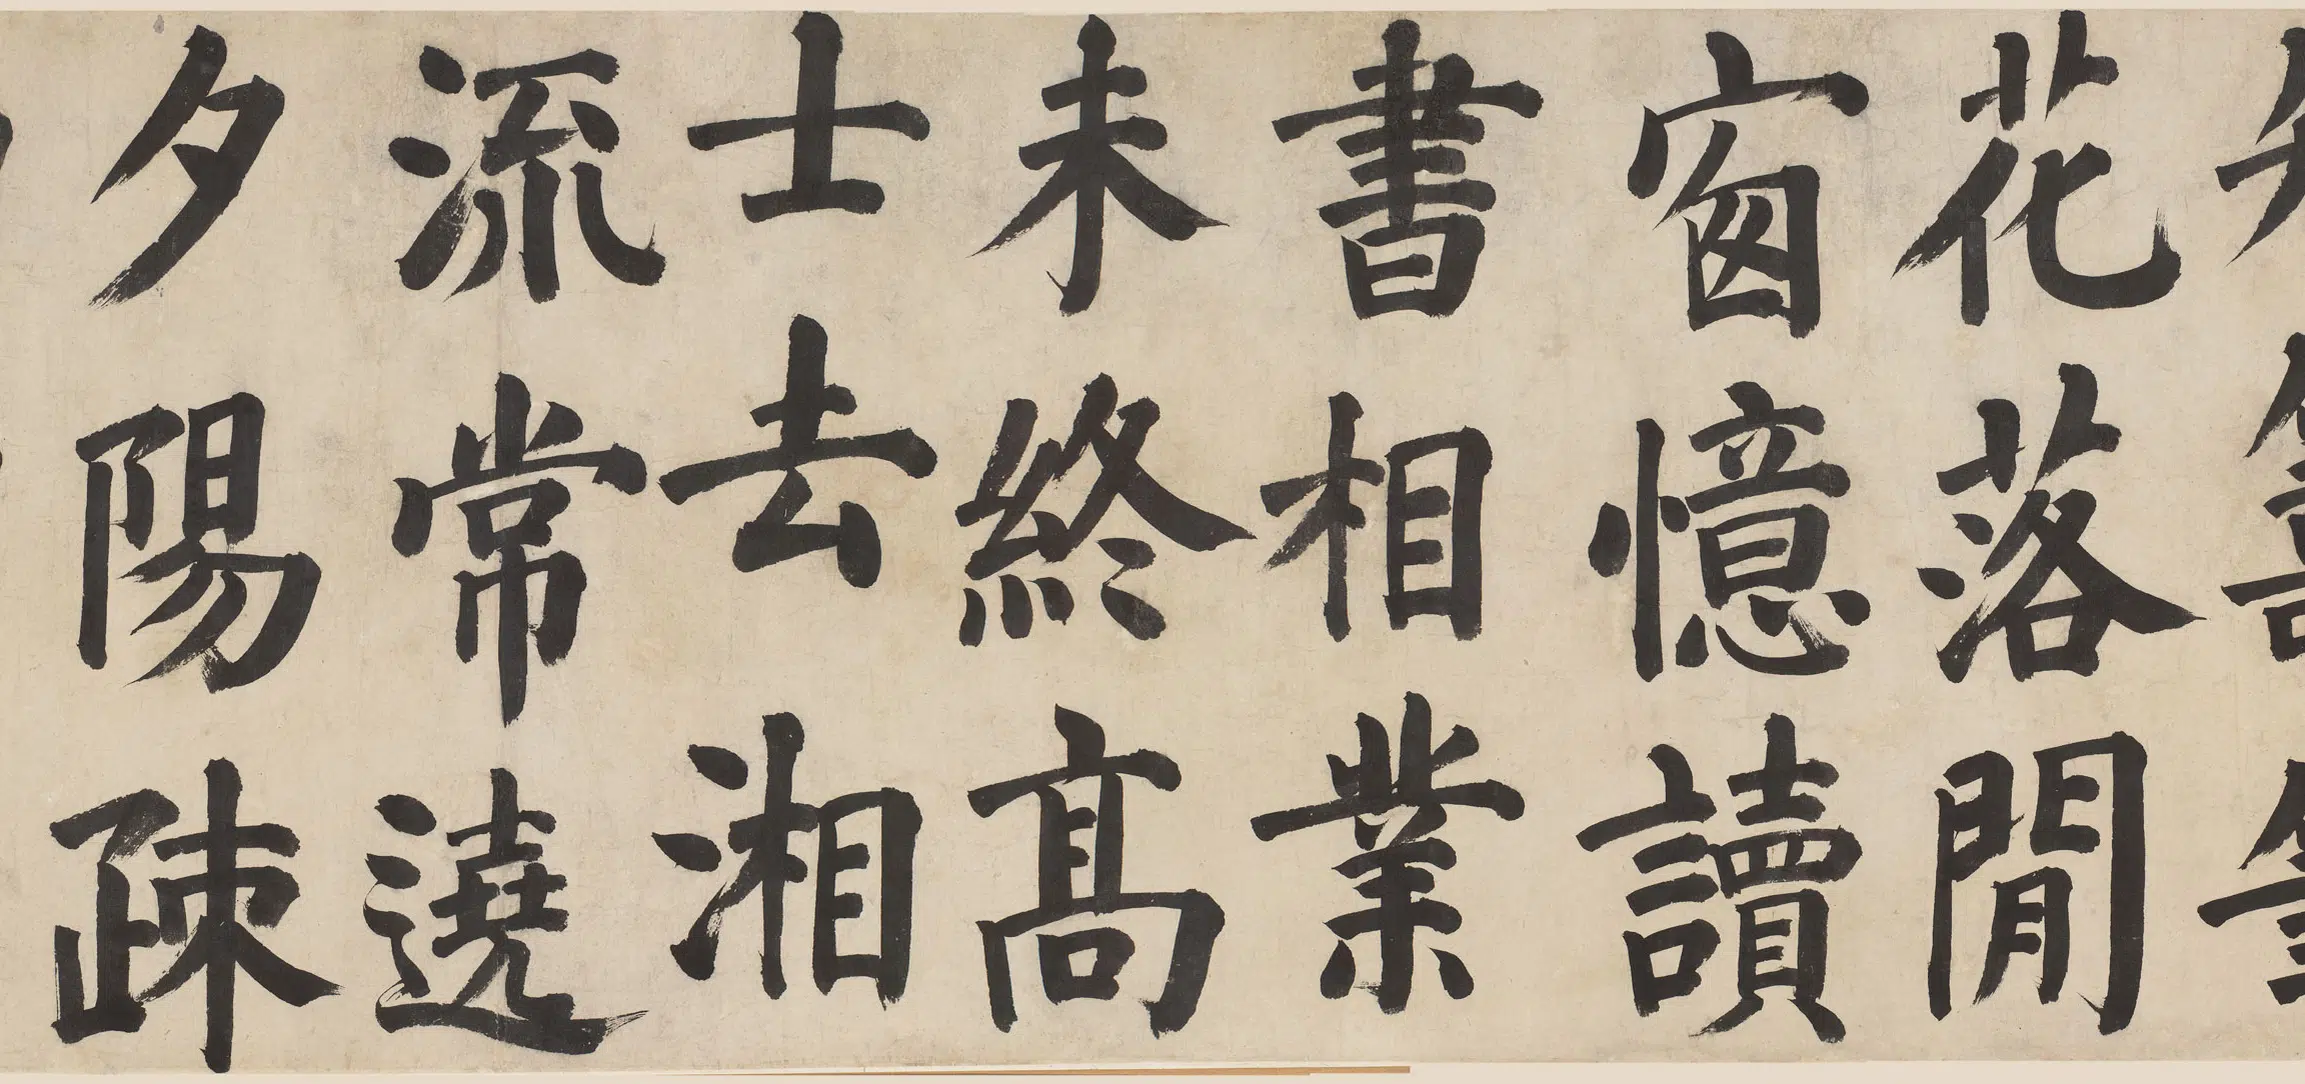 花落閒
窗憶讀
書相業
未終髙
士去湘
流常遶
夕陽疎